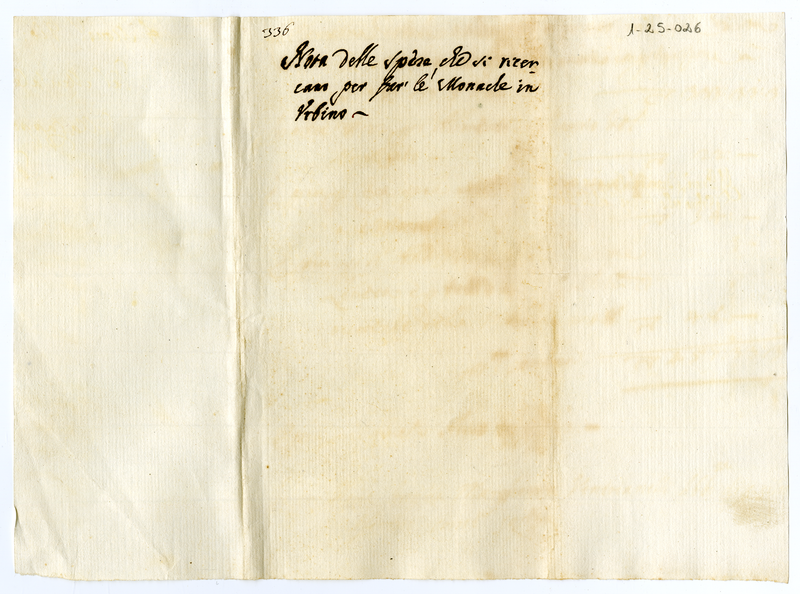 336
1-25-026
Nota delle spese, che si ricer
cano per far le Monache in
Urbino